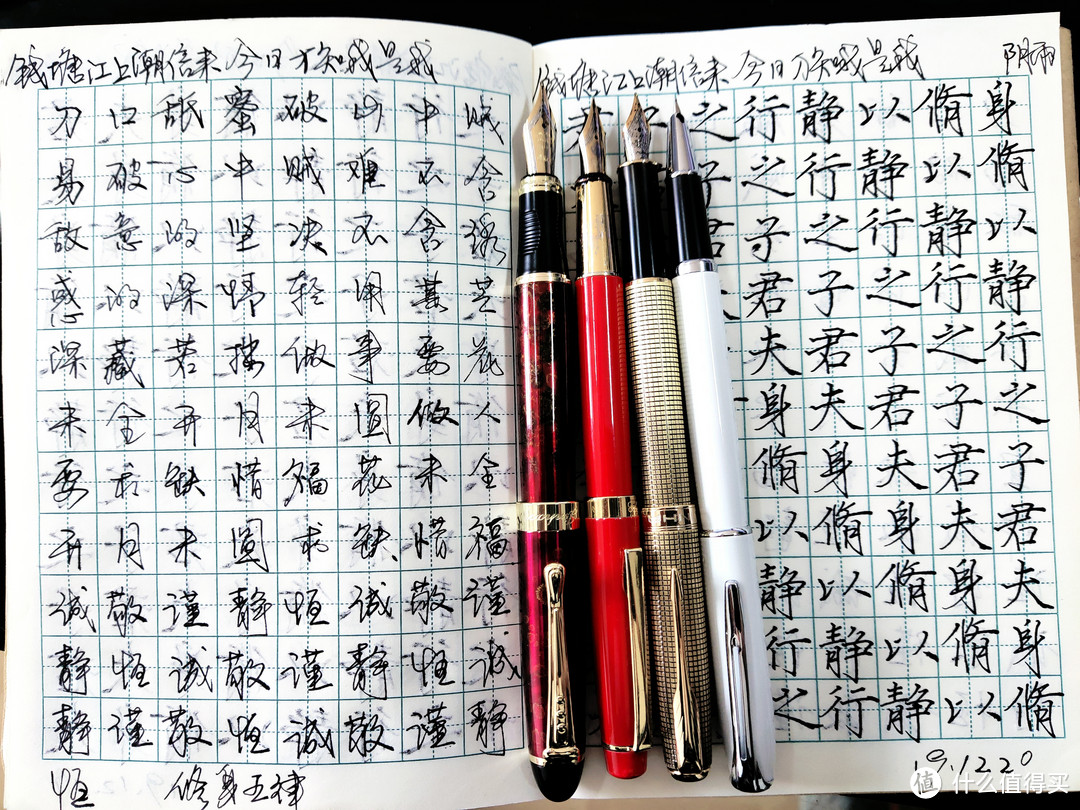 钱塘江上潮信来 今日方知我是我
刀口舐蜜破山中贼
易破心中贼难不含
敌意的坚决不含诱
惑的深情轻用其芒
深藏若拙做事要花
未全开月未圆做人
要求缺惜福花未全
开月未圆求缺惜福
诚敬谨静恒诚敬谨
静恒诚敬谨静恒诚
静谨敬恒诚敬谨静
恒 修身五律
钱塘江上潮信来 今日方知我是我 阴雨
君子之行静以脩身
子之行静以脩
君子之行静以
君子之行静
夫君子之行
身夫君子之
脩身夫君子
以脩身夫君
静以脩身夫
行静以脩身
之行静以脩
19.1220
值 什么值得买